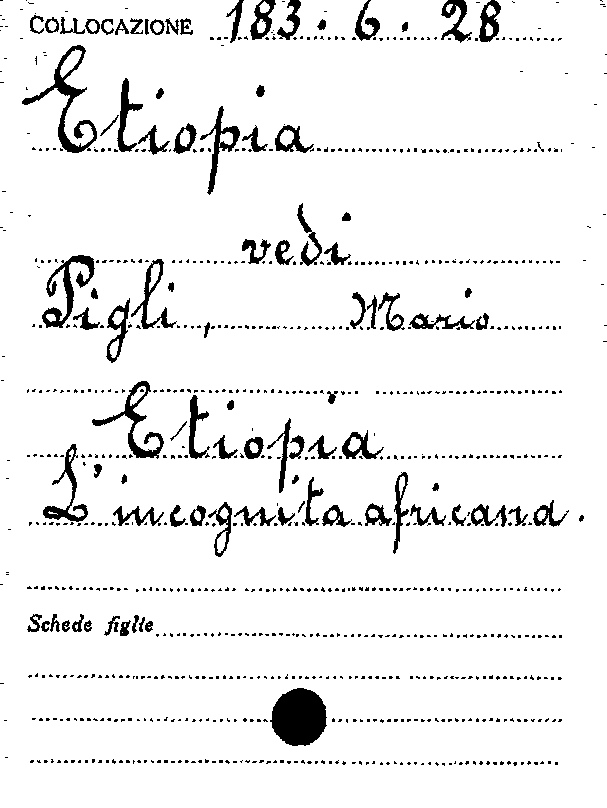 COLLOCAZIONE 183. 6. 28
Etiopia
vedi
Pigli, Mario
Etiopia
L'incognita africana.
Schede figlie